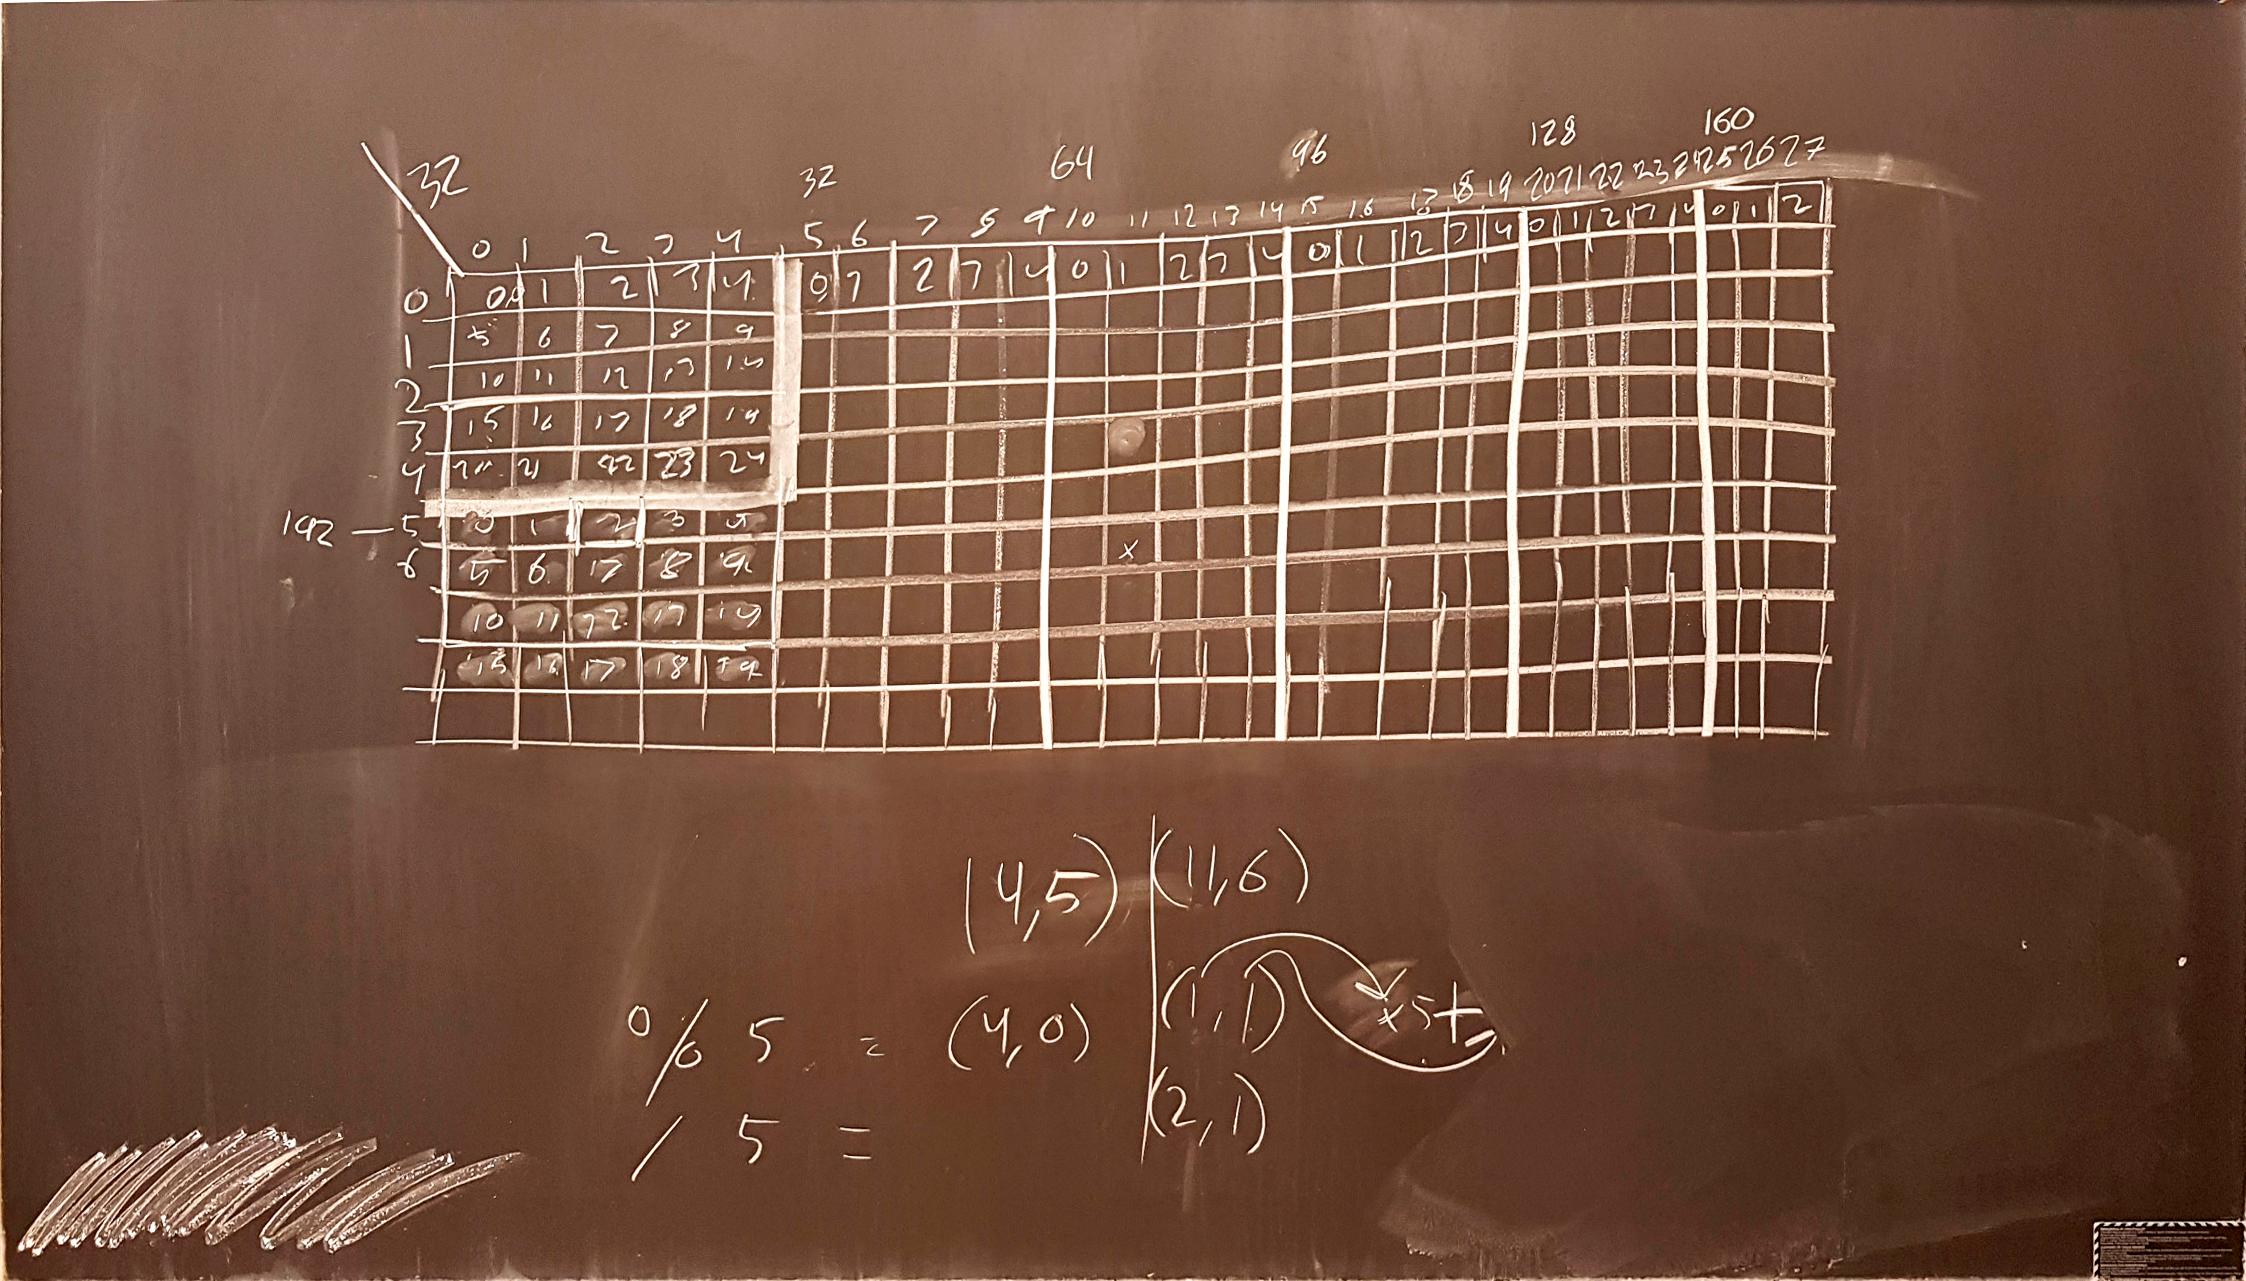 32 32 64 96 128 160
0 1 2 3 4 5 6 7 8 9 10 11 12 13 14 15 16 17 18 19 20 21 22 23 24 25 26 27
0 0 1 2 3 4 0 1 2 3 4 0 1 2 3 4 0 1 2 3 4 0 1 2 3 4 0 1 2
1 5 6 7 8 9
2 10 11 12 13 14
3 15 16 17 18 19
4 20 21 22 23 24
192 — 5 0 1 2 3 4
6 5 6 17 8 9
10 11 12 13 14
x
15 16 17 18 19
(4,5) (11,6)
% 5 = (4,0) (1,1) x5+
/ 5 = (2,1)